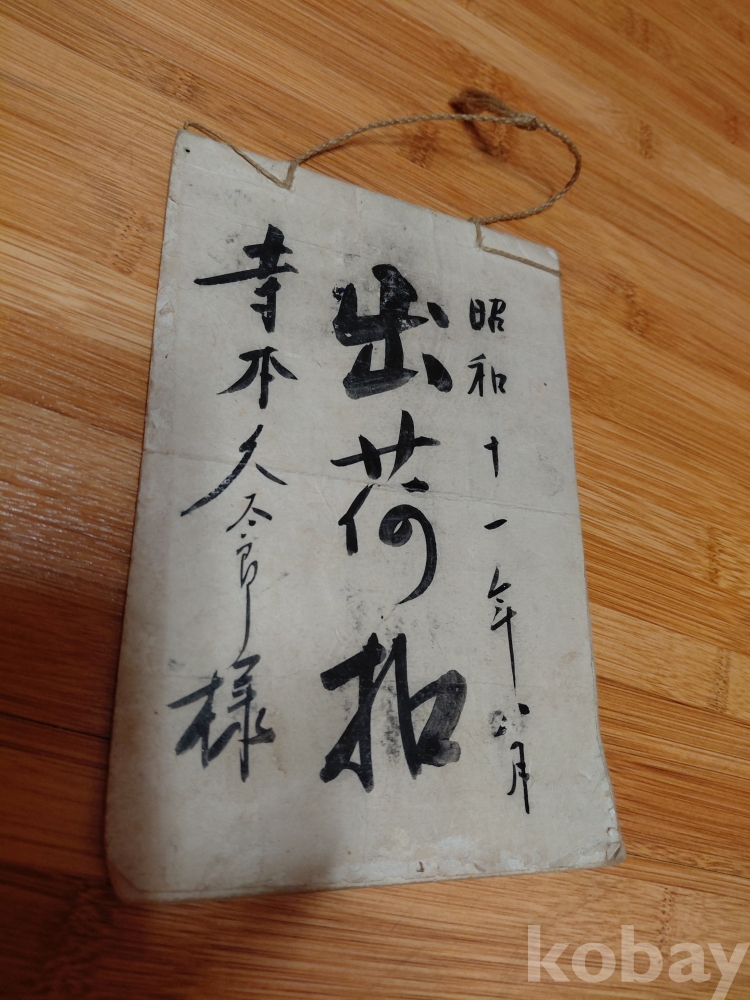 昭和十一年八月
出荷扣
寺本久太郎様
kobay